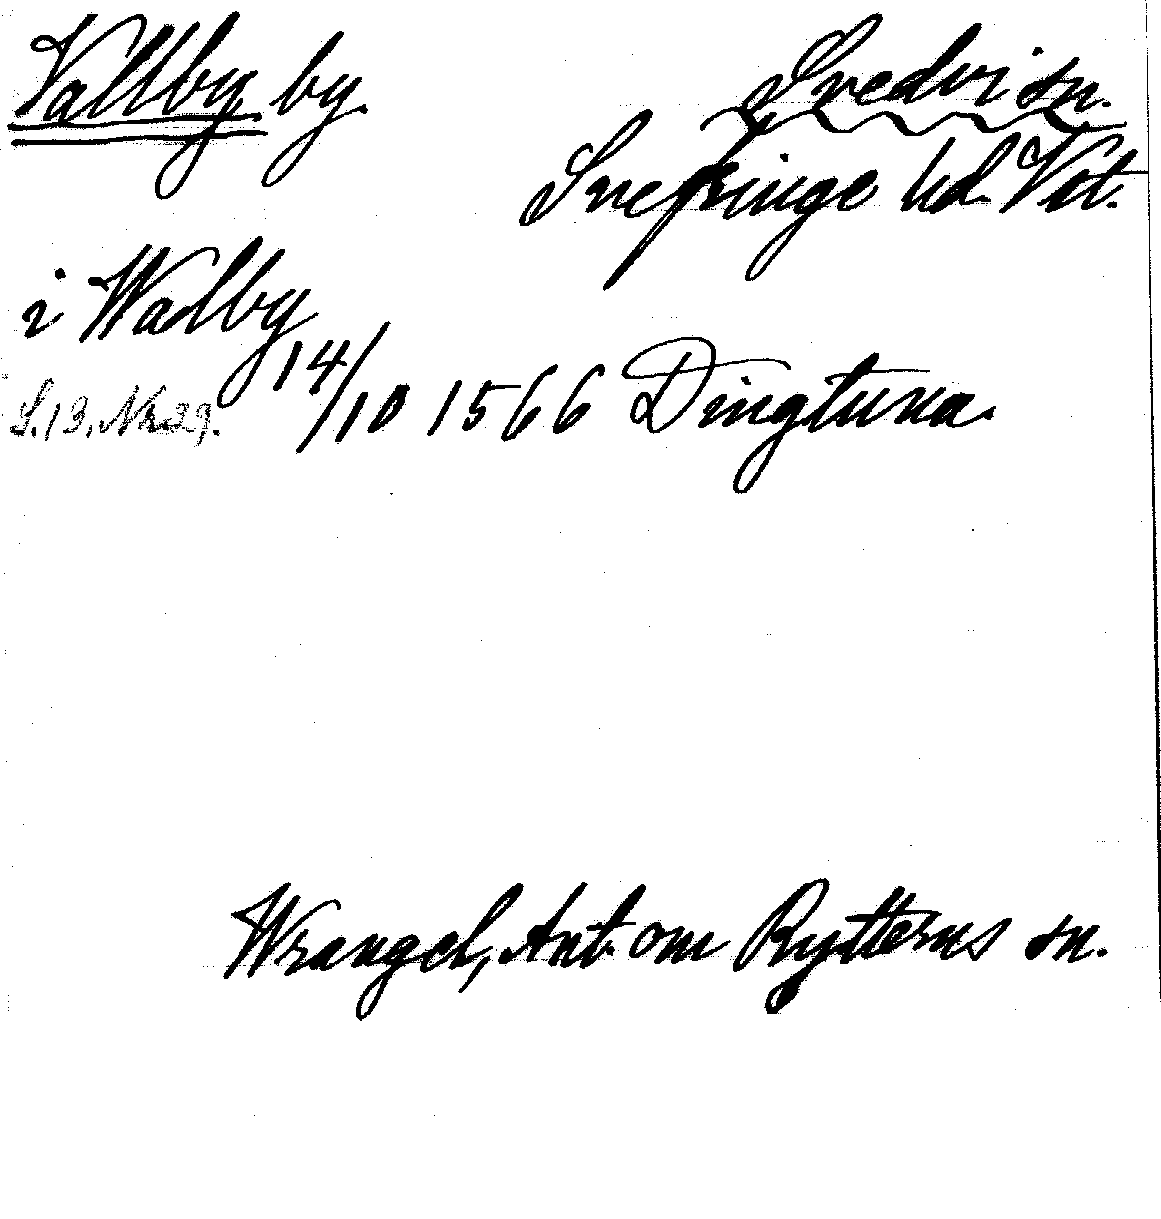 Vallby by. Svedvi sn.
Snefringe hd. Vstl.
i Walby
14/10 1566 Dingtuna.
S.13. Nr 29.
Wrangel, Ant. om Rytterns sn.